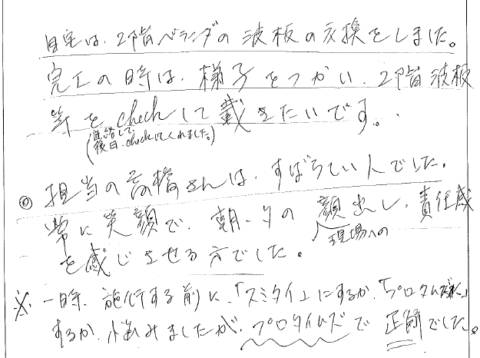 自宅は、2階ベランダの波板の交換をしました。
完工の時は、梯子をつかい、2階波板
等をcheckして戴きたいです。
(連絡して
後日、checkしてくれました。)
◎担当の高橋さんは、すばらしい人でした。
常に笑顔で、朝・夕の顔出し、責任感
現場への
を感じさせる方でした。
※一時、施行する前に、「スミタイ」にするか、「プロタイムズ」に
するか、悩みましたが、プロタイムズで正解でした。